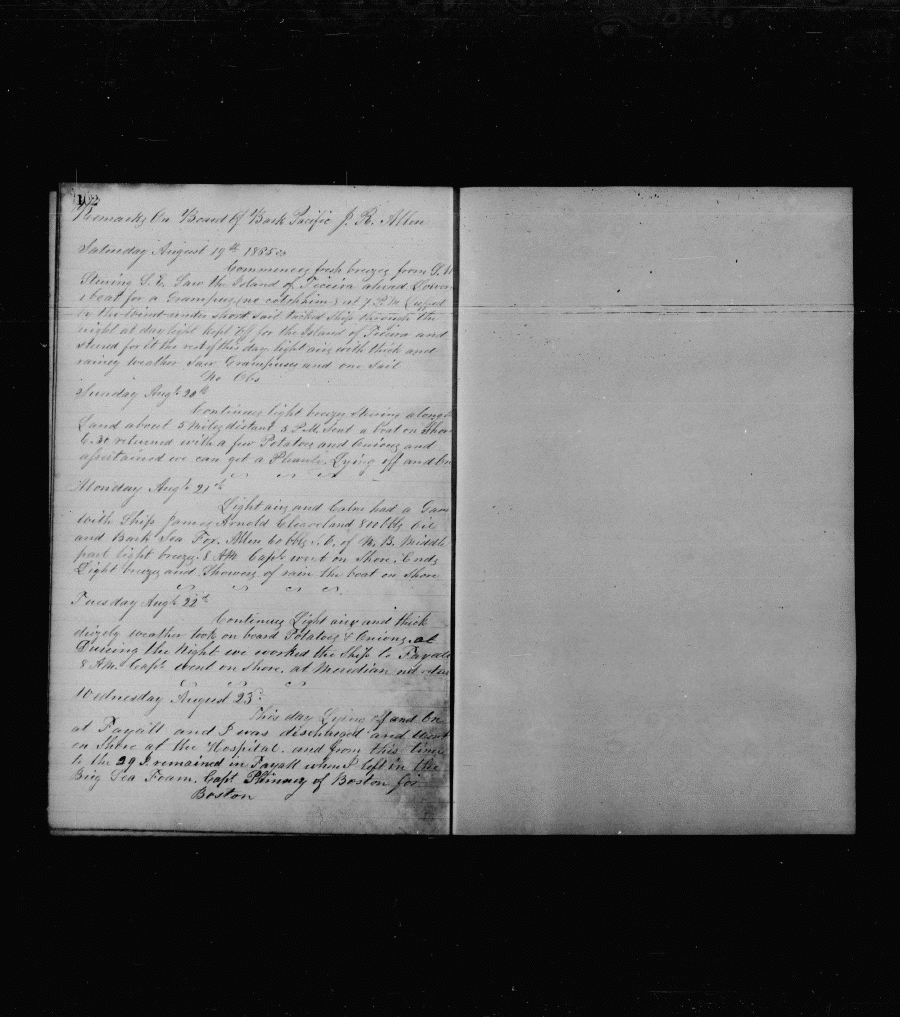 102
Remarks On Board Of Bark Pacific J. R. Allen
Saturday August 19th 1885
Commences fresh breezes from S. W
Stering S. E. Saw the Island of Treceira ahead Lowerd
1 boat for a Grampus (no catch him) at 7 P.M Luffed
by the wind under short sail tacked ship through the
night at day light kept off for the Island of Treceira and
stered for it the rest of this day light airs with thick and
rainey weather Saw Grampuses and one Sail
No Obs
Sunday Augt 20th
Continues light breezes stering along the
Land about 5 Miles distant 3 P.M. sent a boat on Shore
6.30 returned with a few Potatoes and Onions and
assertained we can get a Plenty. Lying off and On
Monday Augt 21st
Light airs and Calms had a Gam
with Ship James Arnold Cleaveland 800 bbls Oil
and Bark Sea Fox. Allen 60 bbls S.O. of N. B. Middle
part light breezes. 8 A.M. Capt went on Shore. Ends
Light breezes and Showers of rain the boat on Shore
Tuesday Augt 22nd
Continues Light airs and thick
drizely weather took on board Potatoes & Onions. at
During the Night we worked the Ship to Fayall
8 A.M. Capt went on Shore. at Meridian not
Wednesday August 23
This day Lying off and On
at Fayall and I was discharged and went
on Shore at the Hospital. and from this time
to the 29 I remained in Fayall when I left in the
Brig Sea Foam. Capt of Boston for
Boston